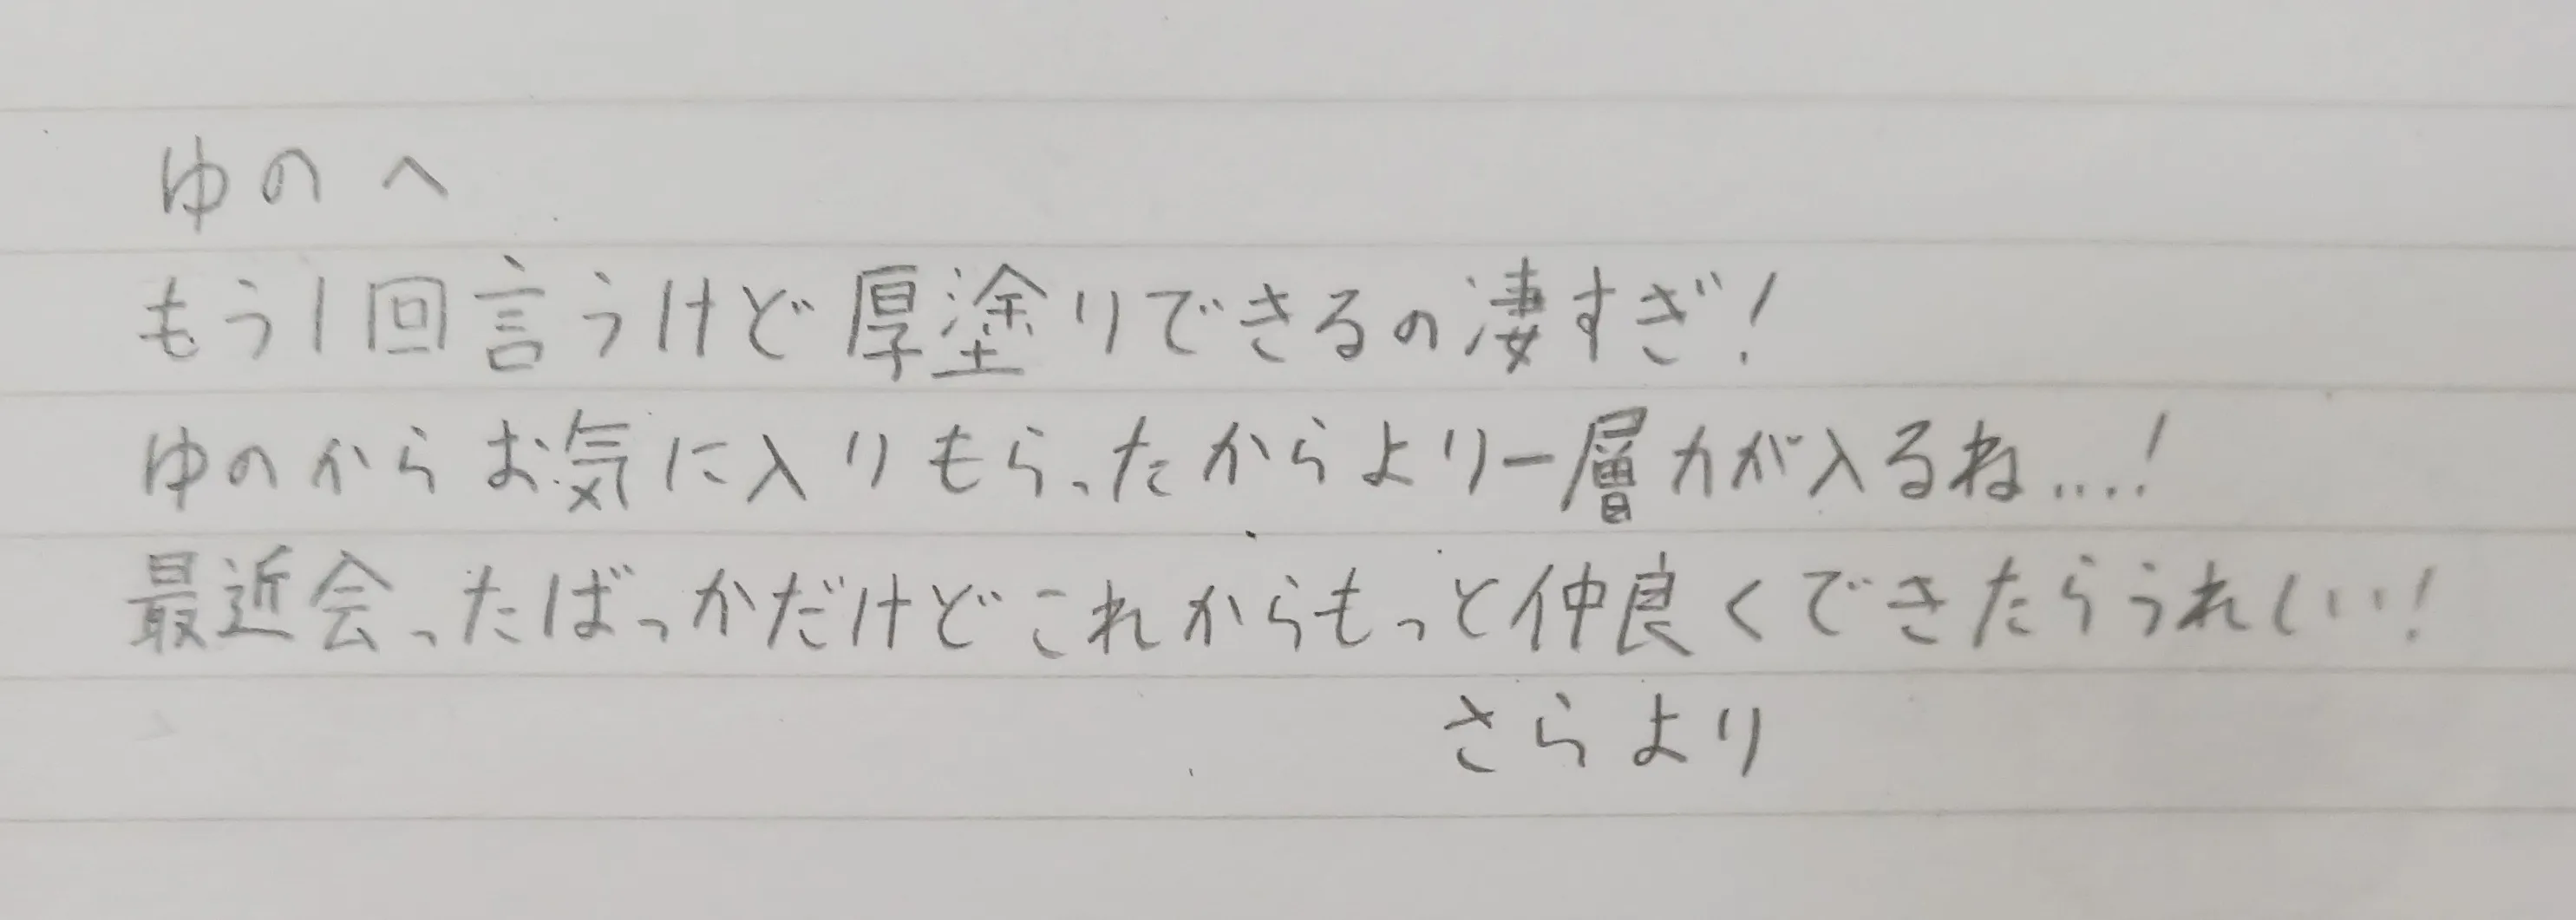 ゆのへ
もう1回言うけど厚塗りできるの凄すぎ!
ゆのからお気に入りもらったからより一層力が入るね....!
最近会ったばっかだけどこれからもっと仲良くできたらうれしい!
さらより